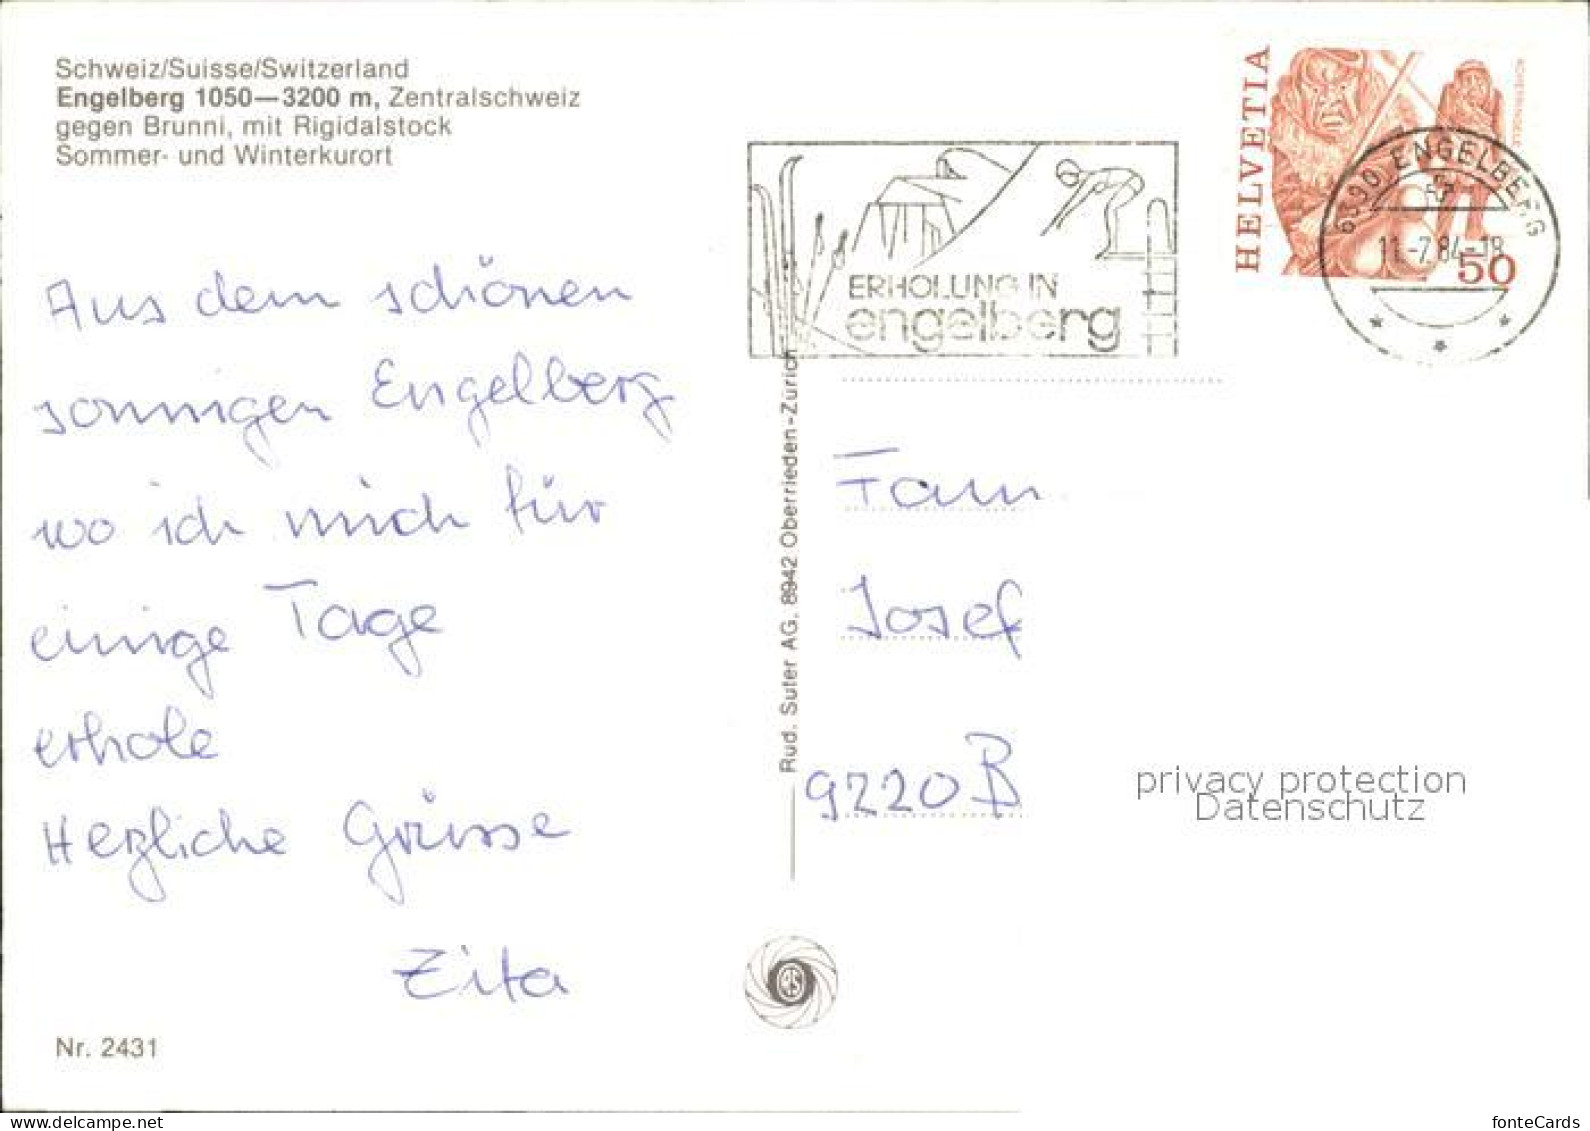 Schweiz/Suisse/Switzerland
Engelberg 1050—3200 m, Zentralschweiz
gegen Brunni, mit Rigidalstock
Sommer- und Winterkurort
Aus dem schönen
sonnigen Engelberg
wo ich mich für
einige Tage
erhole
Herzliche Grüsse
Zita
Nr. 2431
Rud. Suter AG, 8942 Oberrieden-Zürich
ERHOLUNG IN
engelberg
HELVETIA
50
6390 ENGELBERG
11.-7.84-18
Fam
Josef
9220 B
privacy protection
Datenschutz
www.delcampe.net
fonteCards